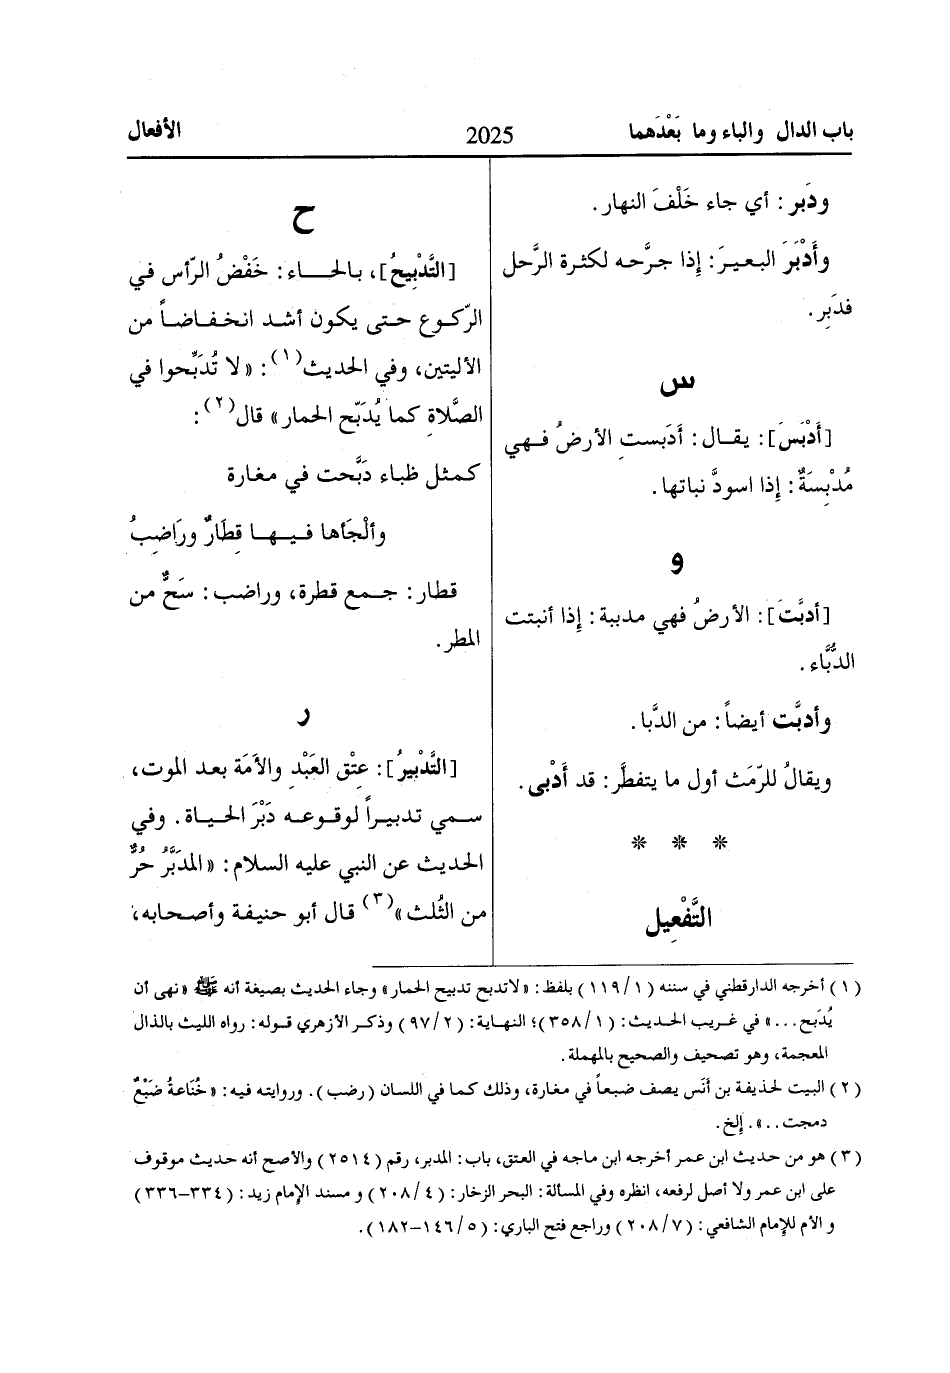 باب الدال والباء وما بَعْدَهما
2025
الأفعال
ودَبر : أي جاء خَلْفَ النهار.
وأَدْبَرَ البعيرَ: إذا جرَّحه لكثرة الرَّحل
فدَبِر.
س
[أَدْبَسَ]: يقال: أَدَبستِ الأرضُ فهي
مُدْبِسَةٌ: إذا اسودَّ نباتها.
و
[أدبَّتَ]: الأرضُ فهي مدبية: إذا أنبتت
الدُّبَّاء.
وأدبَّت أيضاً: من الدَّبا.
ويقالُ للرّمَث أول ما يتفطَّر: قد أَدْبى.
* * *
التَّفْعِيل
ح
[التَّدْبِيحُ]، بالحاء: خَفْضُ الرّأس في
الرّكوع حتى يكون أشد انخفاضاً من
الأليتين، وفي الحديث(١): «لا تُدَبِّحوا في
الصَّلاةِ كما يُدَبّح الحمار» قال(٢):
كمثل ظباء دَبَّحت في مغارة
وألْجَأها فيها قِطَارٌ ورَاضِبُ
قطار: جمع قطرة، وراضب: سَحٌّ من
المطر.
ر
[التَّدْبيرُ]: عِتْق العَبْدِ والأمَة بعد الموت،
سمي تدبيراً لوقوعه دَبْرَ الحياة. وفي
الحديث عن النبي عليه السلام: «المدَبَّرُ حُرٌّ
من الثُلث»(٣) قال أبو حنيفة وأصحابه،
(١) أخرجه الدارقطني في سننه (١/١١٩) بلفظ: «لاتدبح تدبيح الحمار» وجاء الحديث بصيغة أنه ﷺ «نهى أن
يُدَبح...» في غريب الحديث: (١/٣٥٨)؛ النهاية: (٢/٩٧) وذكر الأزهري قوله: رواه الليث بالذال
المعجمة، وهو تصحيف والصحيح بالمهملة.
(٢) البيت لحذيفة بن أنَس يصف ضبعاً في مغارة، وذلك كما في اللسان (رضب). وروايته فيه: «خُنَاعةُ ضَبْعٌ
دمجت..». إلخ.
(٣) هو من حديث ابن عمر أخرجه ابن ماجه في العتق، باب: المدبر، رقم (٢٥١٤) والأصح أنه حديث موقوف
على ابن عمر ولا أصل لرفعه، انظره وفي المسألة: البحر الزخار: (٤/٢٠٨) و مسند الإمام زيد: (٣٣٤–٣٣٦)
و الأم للإمام الشافعي: (٧/٢٠٨) وراجع فتح الباري: (٥/١٤٦–١٨٢).